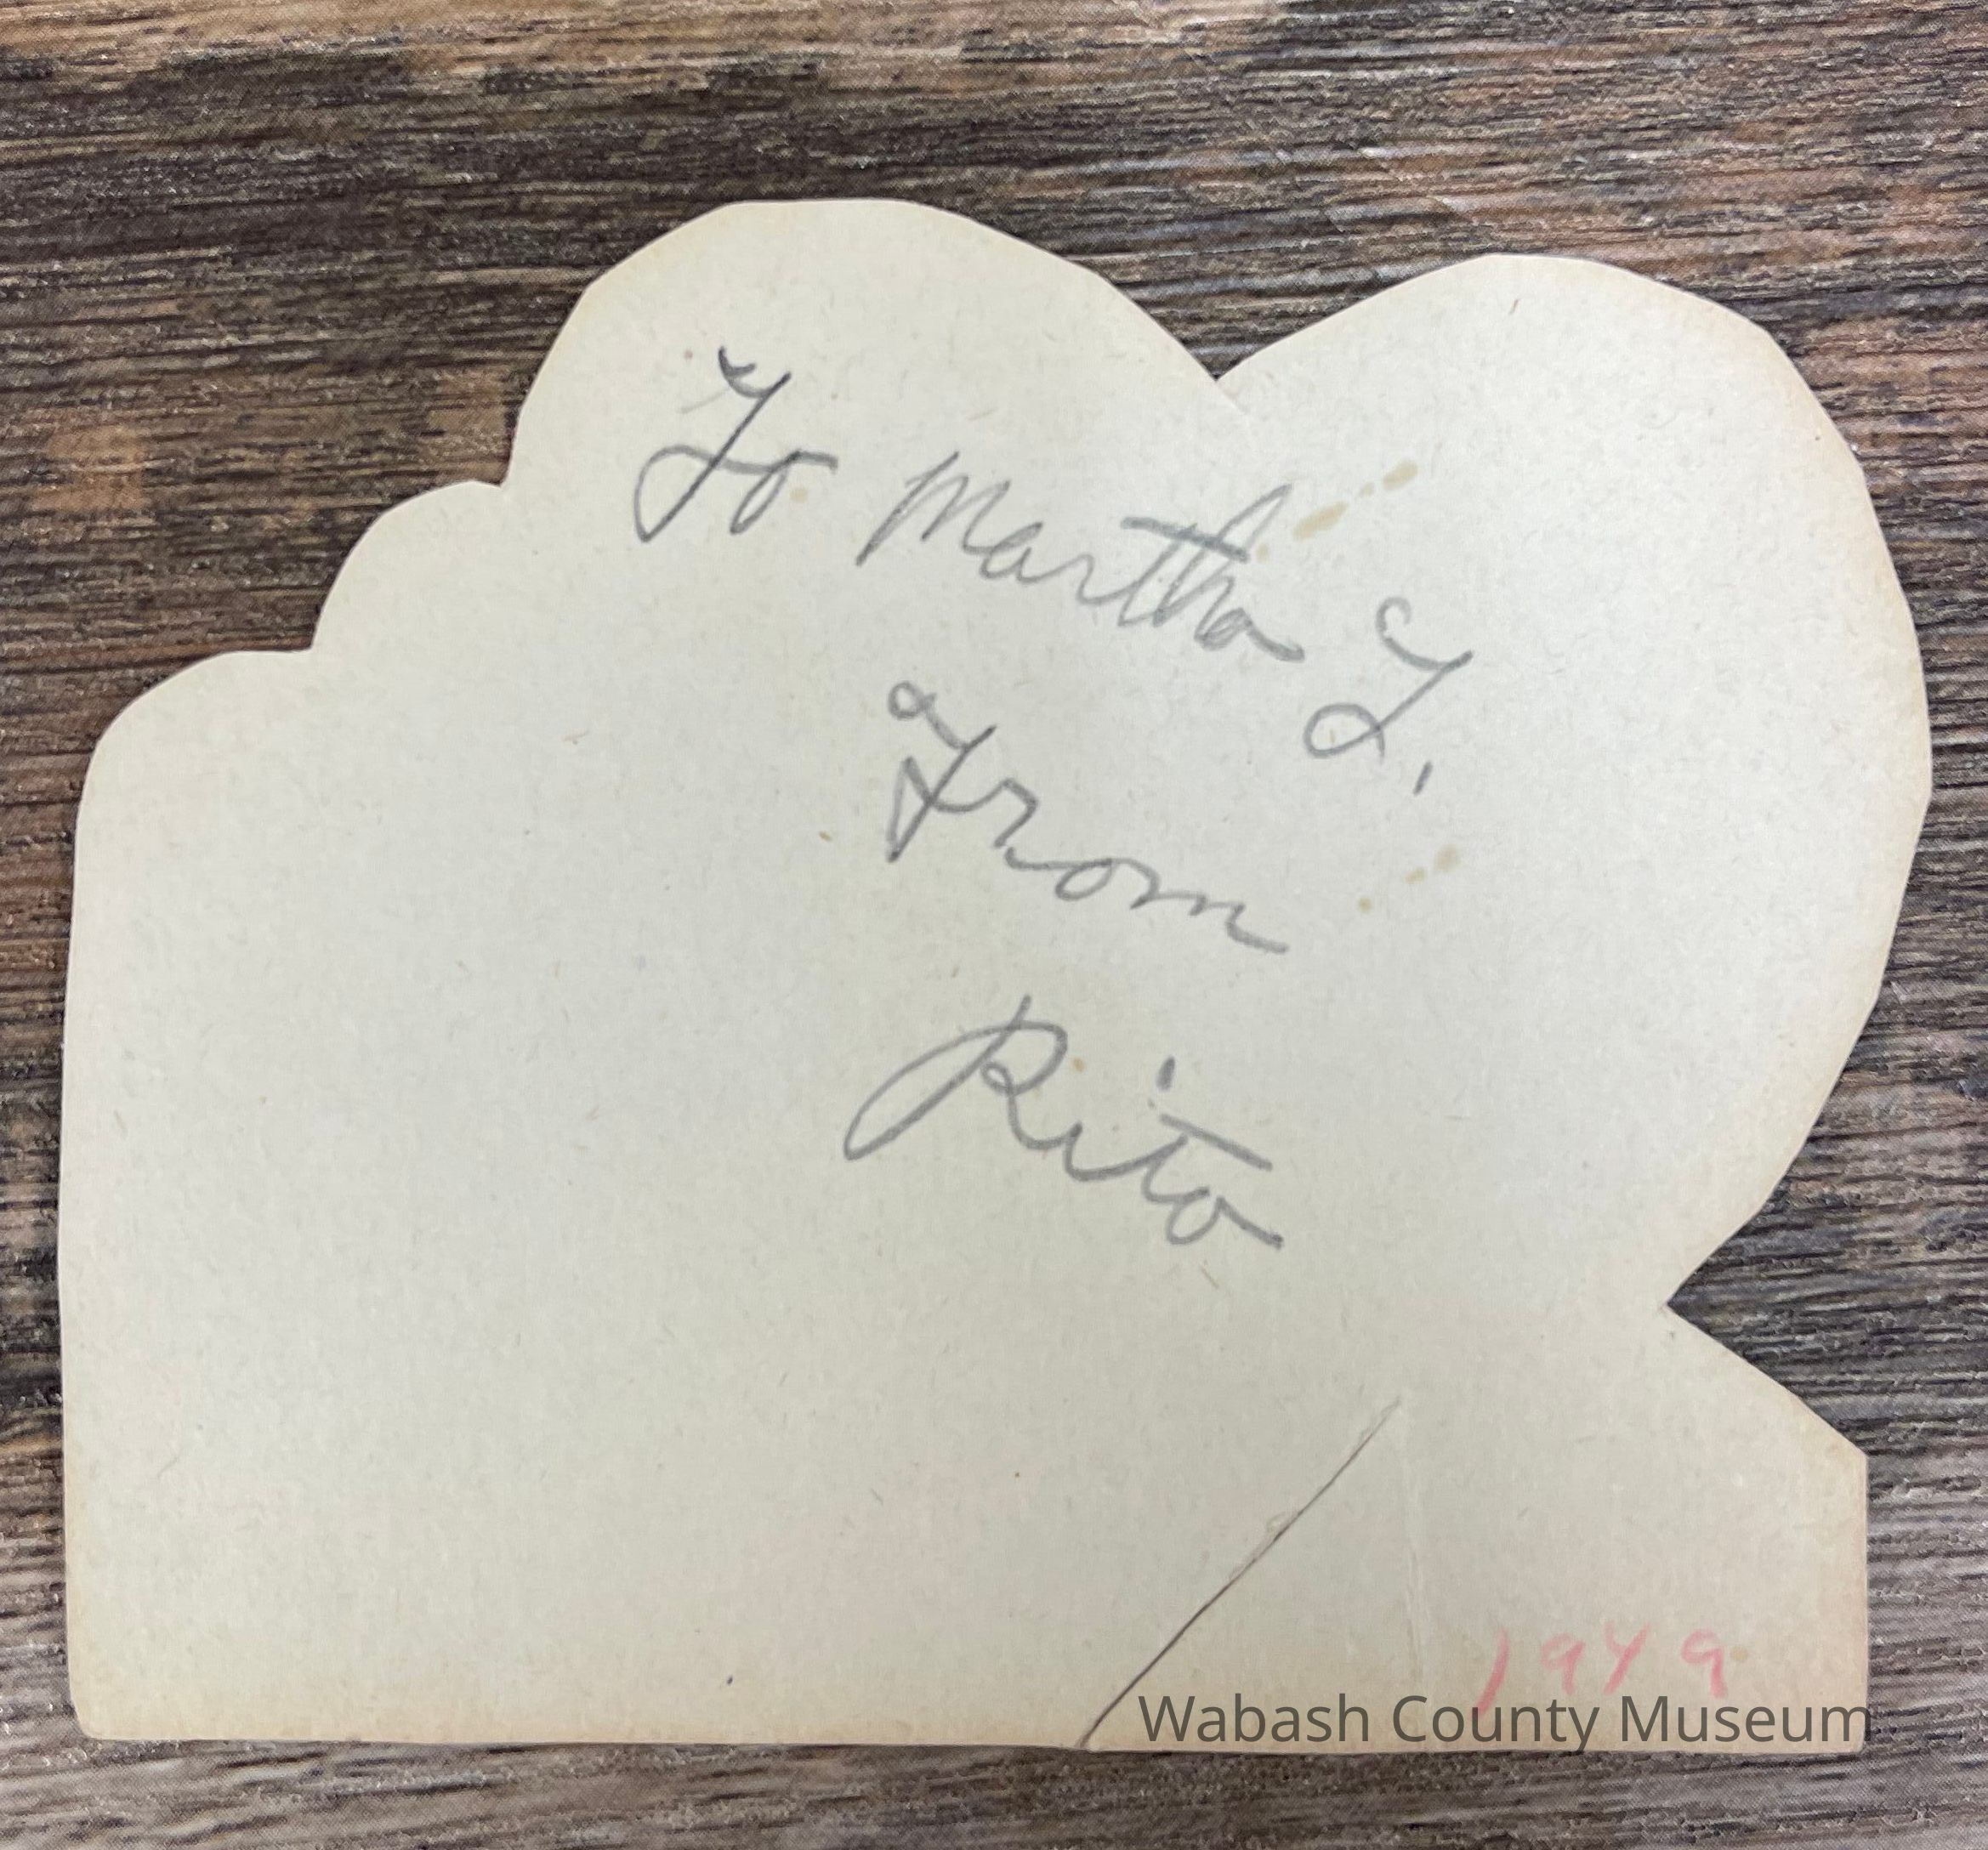 To Martha L.
From
Rita
1949
Wabash County Museum